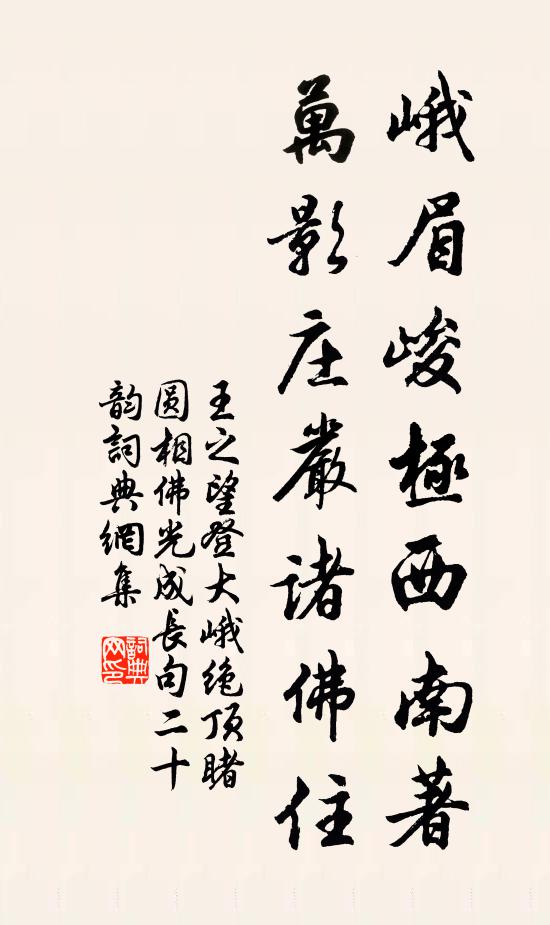 峨眉峻極西南著
萬影庄嚴諸佛住
王之望登大峨绝顶睹
圆相佛光成長句二十
韵詞典網集
詞典
网印